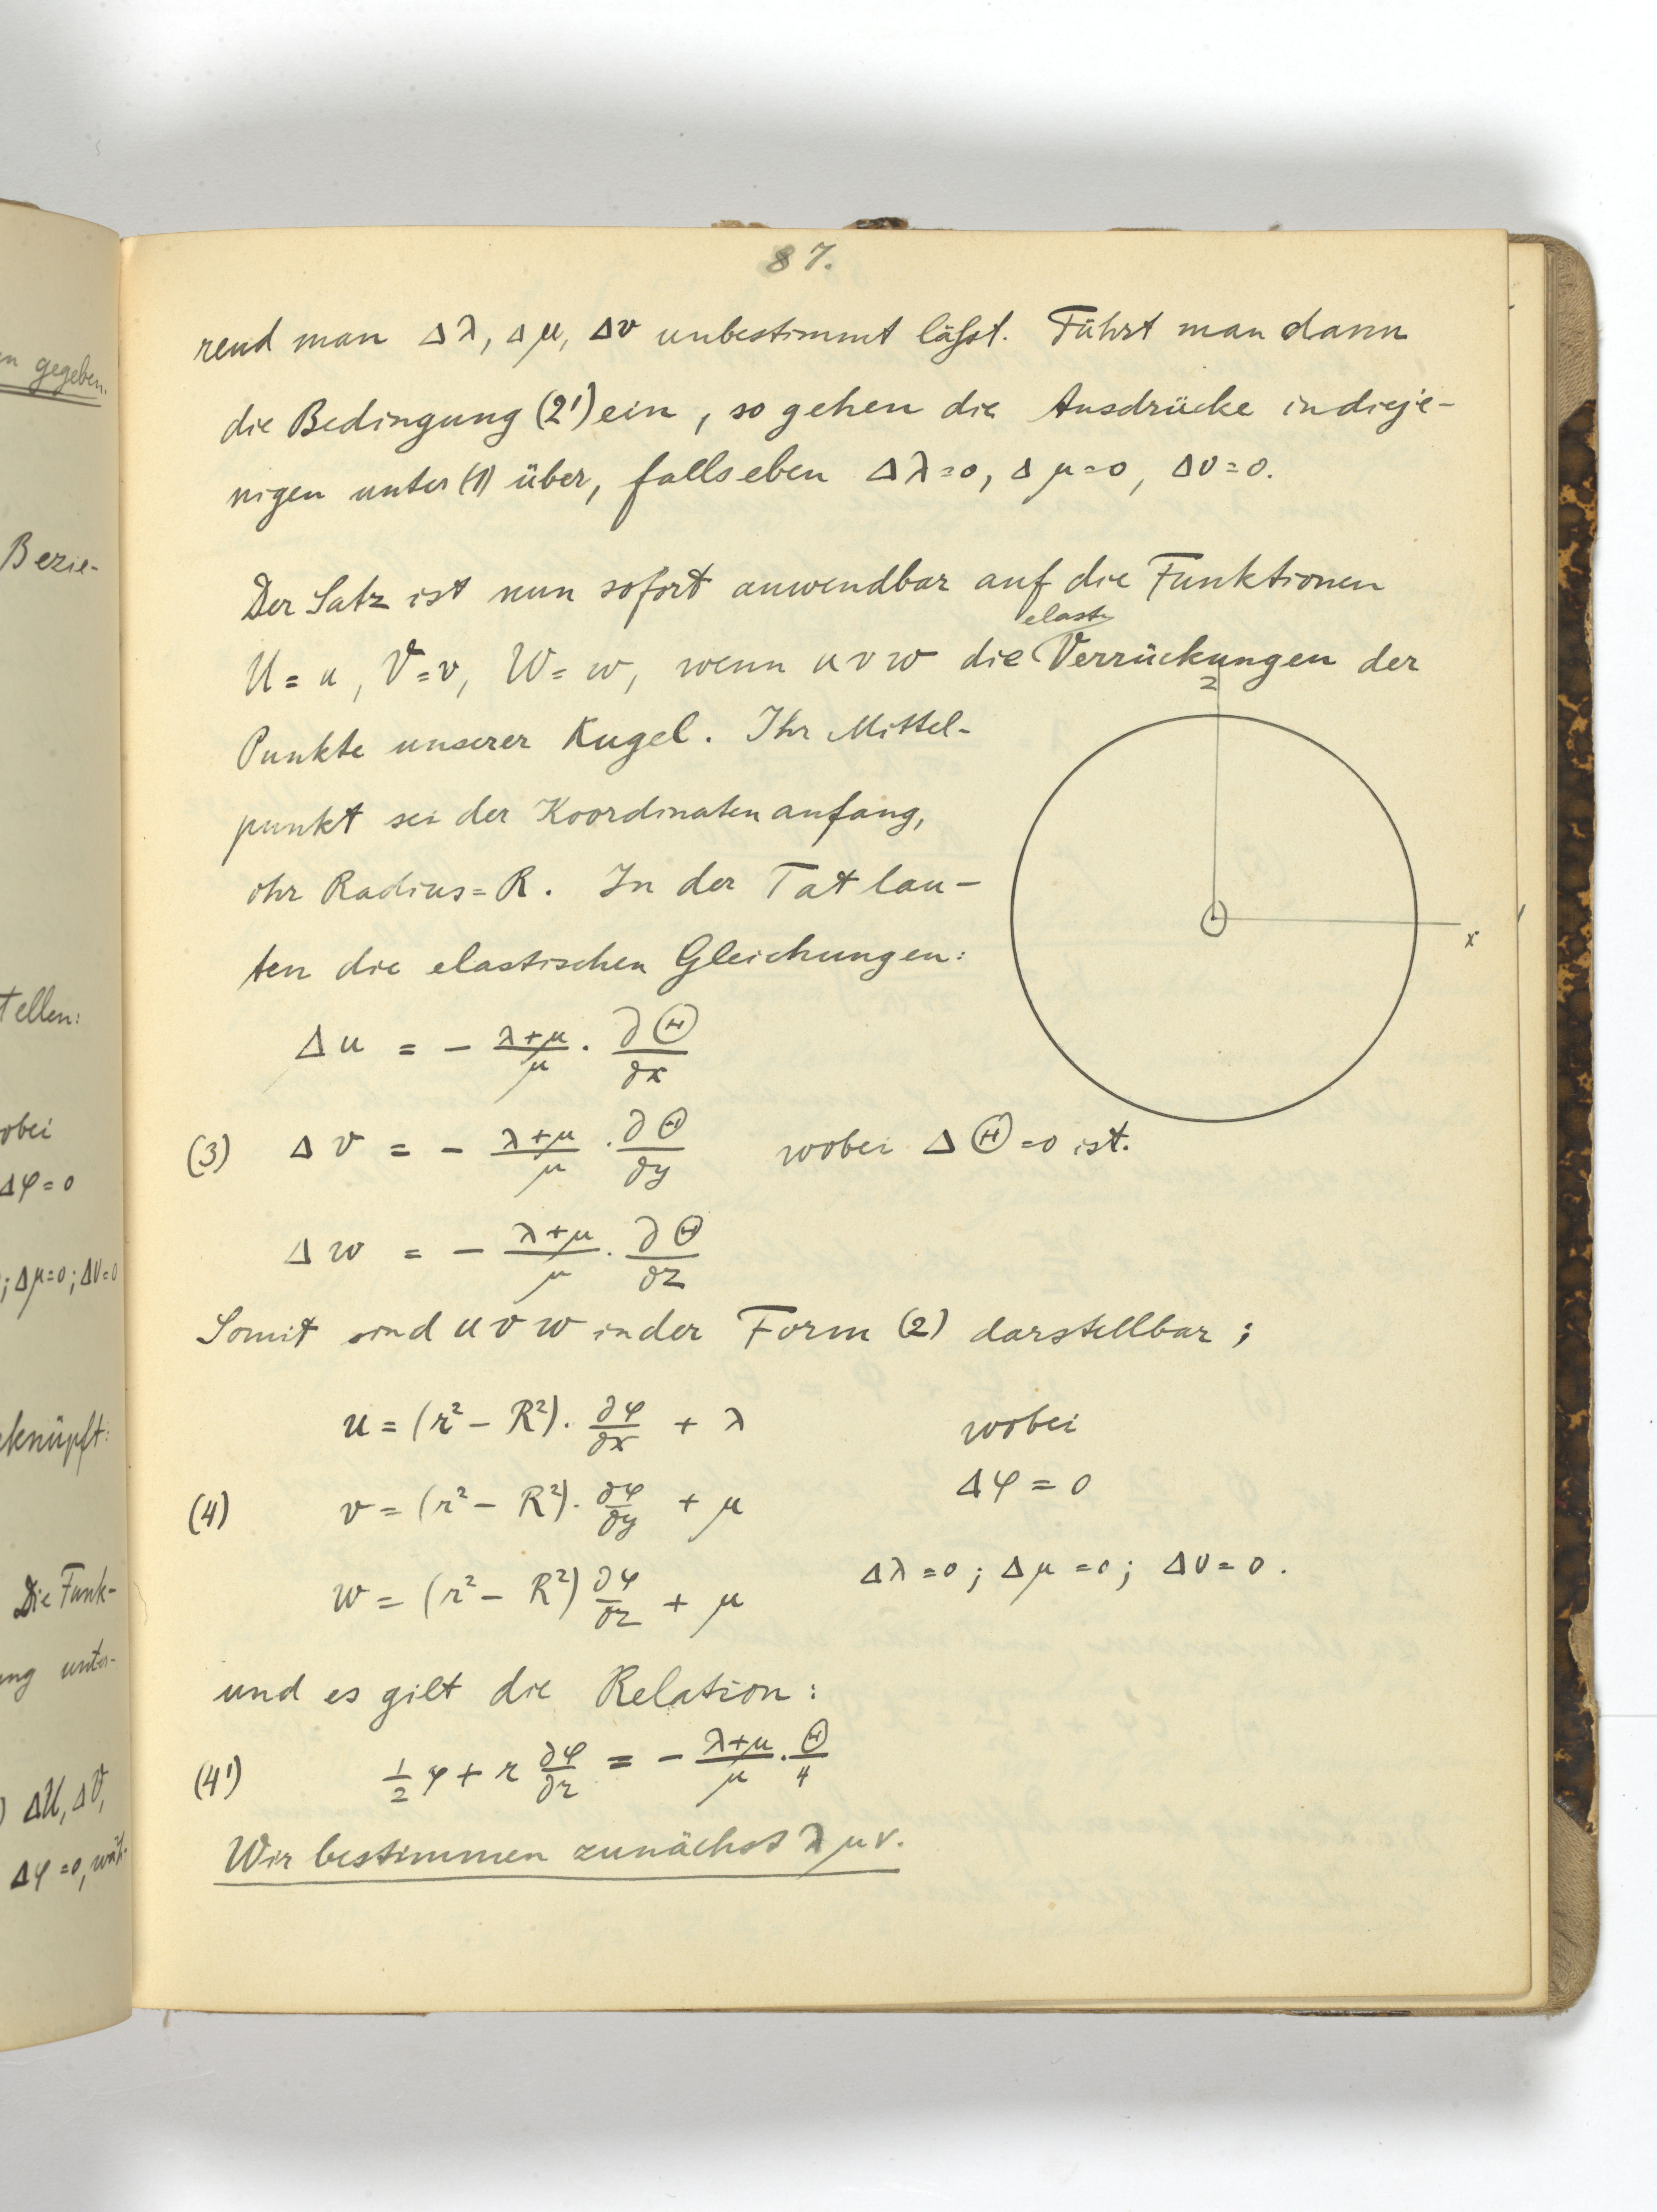 n gegeben.
Bezie-
tellen:
obei
Δφ=0
; Δμ=0; Δν=0
knüpft:
Die Funk-
ng unter-
) ΔU, ΔV,
Δφ=0, wäh-
87.
rend man Δλ, Δμ, Δν unbestimmt läßt. Führt man dann
die Bedingung (2') ein, so gehen die Ausdrücke in dieje-
nigen unter (1) über, falls eben Δλ=0, Δμ=0, Δν=0.
Der Satz ist nun sofort anwendbar auf die Funktionen
elast.
U = u, V = v, W = w, wenn u v w die Verrückungen der
Punkte unserer Kugel. Ihr Mittel-
punkt sei der Koordinatenanfang,
ihr Radius = R. In der Tat lau-
ten die elastischen Gleichungen:
z
x
Δu = - (λ+μ)/μ · ∂Θ/∂x
(3) Δv = - (λ+μ)/μ · ∂Θ/∂y wobei ΔΘ=0 ist.
Δw = - (λ+μ)/μ · ∂Θ/∂z
Somit sind u v w in der Form (2) darstellbar;
u = (r² - R²) · ∂φ/∂x + λ wobei
Δφ = 0
(4) v = (r² - R²) · ∂φ/∂y + μ
w = (r² - R²) ∂φ/∂z + μ Δλ=0; Δμ=0; Δν=0.
und es gilt die Relation:
(4') 1/2 φ + r ∂φ/∂r = - (λ+μ)/μ · Θ/4
Wir bestimmen zunächst λ μ ν.